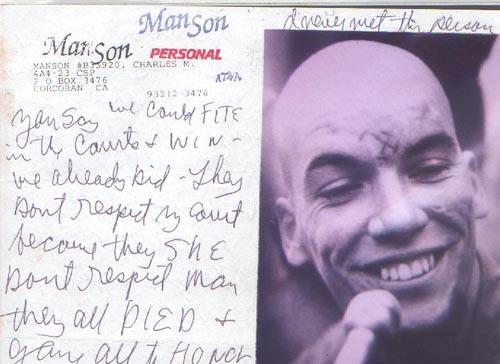 ManSon
I never met this person
ManSon
PERSONAL
MANSON #B33920, CHARLES M.
4A4-23 CSP
P O BOX 3476
CORCORAN CA
93212-3476
You Say we could FITE
in the Courts & WIN -
we already Did - They
Dont respect my court
because they SHE
Dont respect Man
they all DIED &
gave all to HONOR